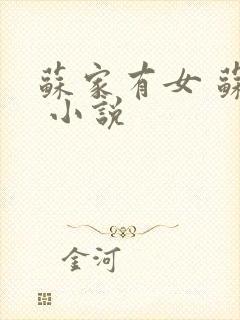 蘇家有女 蘇
小說
金河